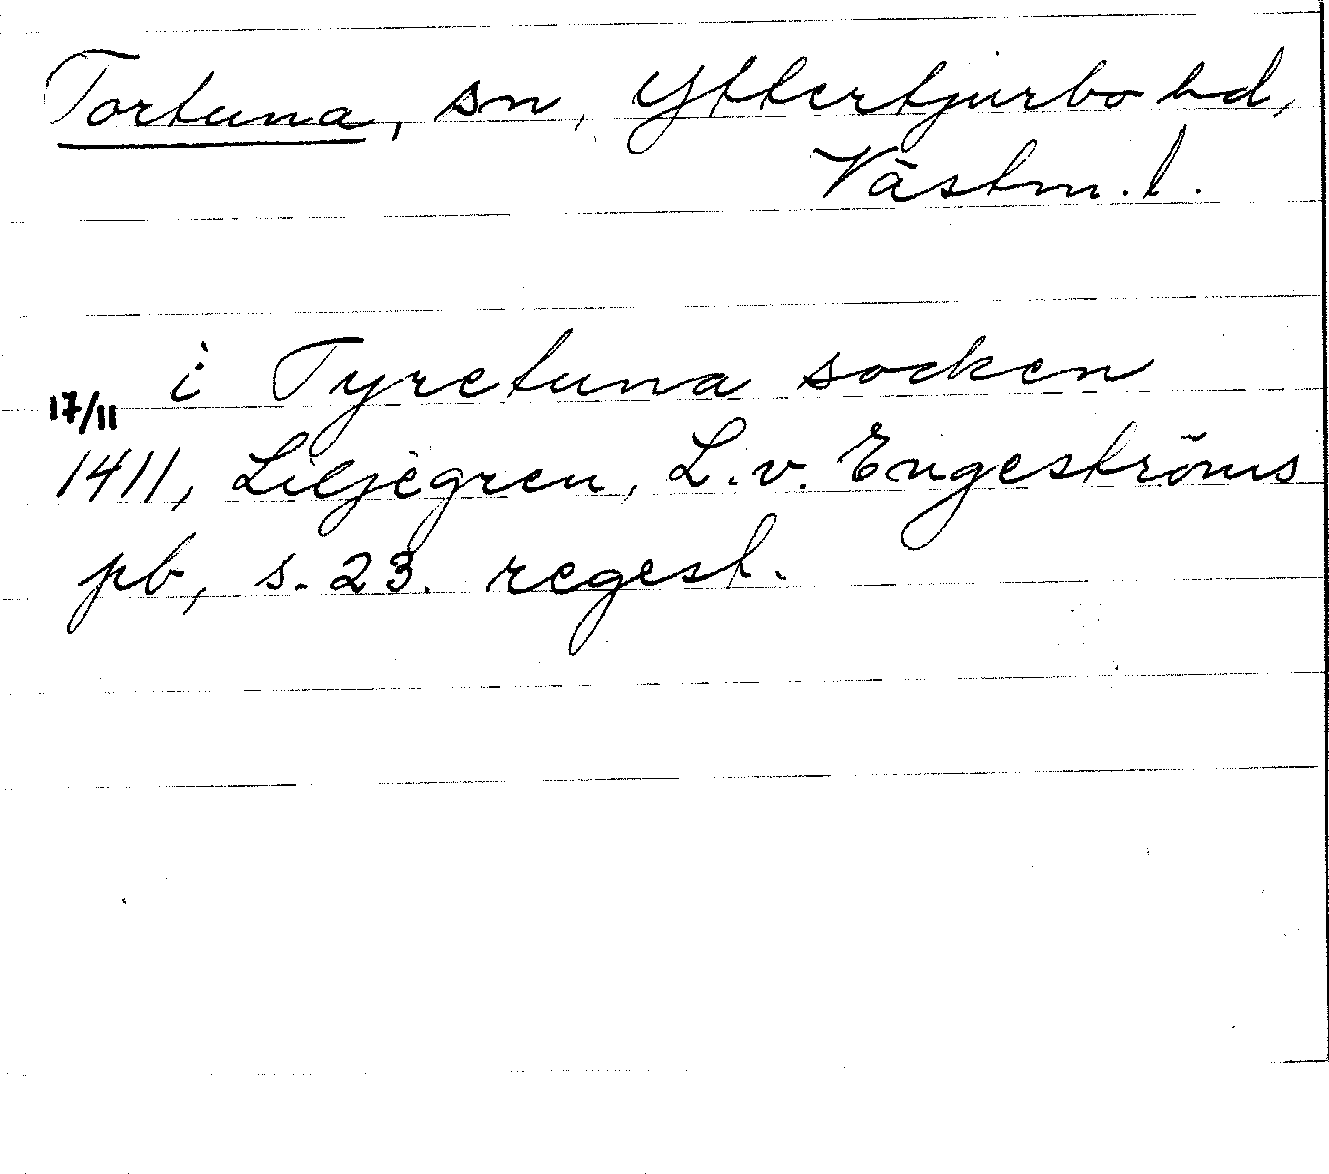 Tortuna, sn, Yttertjurbo hd,
Västm. l.
i Tyretuna socken
17/11
1411, Liljegren, L. v. Engeströms
pb, s. 23. regest.